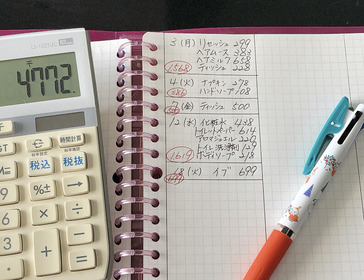 4772.
GT
時間計算
税込 税抜
%
9 × ÷
6 − +
3
3(月) リセッシュ 299
ヘアムース 383
ヘアミルク 658
1568 ティッシュ 228
4(火) ナプキン 278
386 ハンドソープ 108
7(金) ティッシュ 500
12(水) 化粧水 438
トイレットペーパー 614
アロマジェル
トイレ洗浄剤
1619 ボディソープ 218
18(火) イブ 699
699